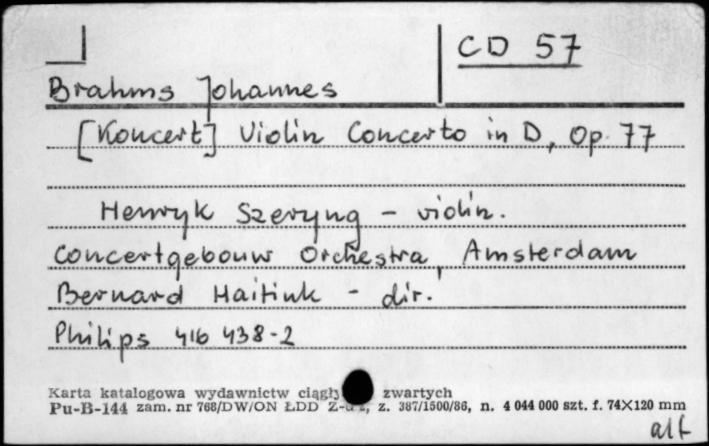 CD 57
Brahms Johannes
[Koncert] Violin Concerto in D, Op. 77
Henryk Szeryng - violin.
Concertgebouw Orchestra, Amsterdam
Bernard Haitink - dir.
Philips 416 438-2
Karta katalogowa wydawnictw zwartych
Pu-B-144 zam. nr 768/DW/ON ŁDD z. 387/1500/86, n. 4 044 000 szt. f. 74X120 mm
alt